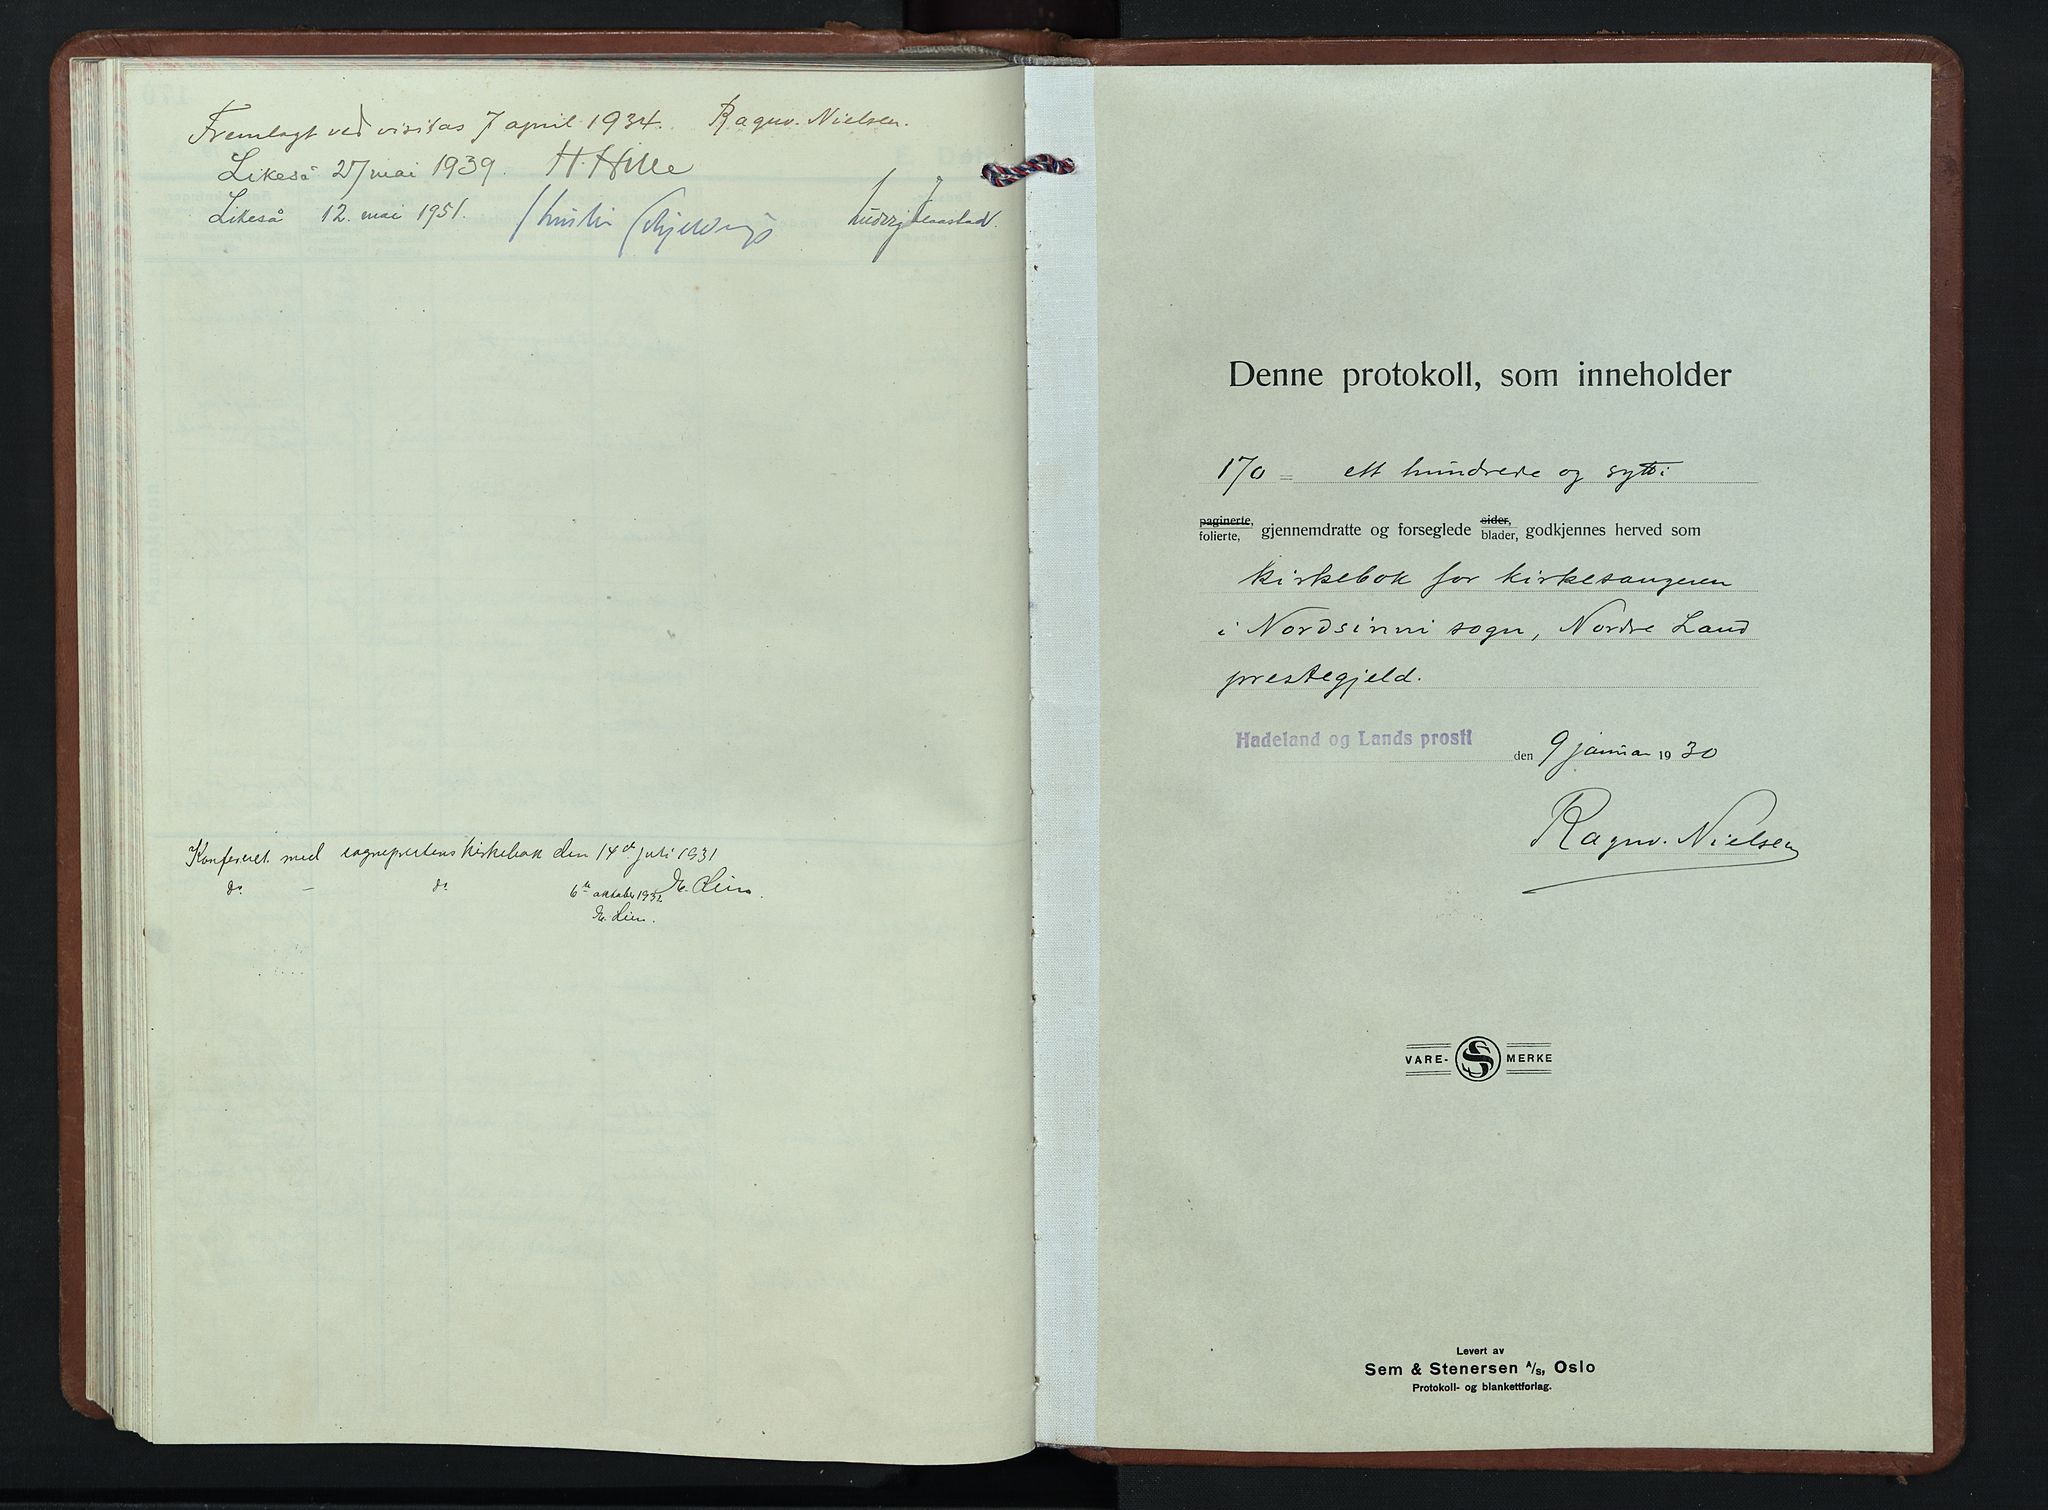 Fremlagt ved visitas 7 april 1934. Ragnv. Nielsen.
Likeså 27 mai 1939. H. Hille
Likeså 12. mai 1951. Kristian Schjelderup Ludvig Jaastad.
Konferert med sogneprestens kirkebok den 14de juli 1931
do – do 6te oktober 1932 M. Lien.
M. Lien.
Denne protokoll, som inneholder
170 = ett hundrede og sytti
paginerte, folierte, gjennemdratte og forseglede sider, blader, godkjennes herved som
kirkebok for kirkesangeren
i Nordsinni sogn, Nordre Land
prestegjeld.
Hadeland og Lands prosti den 9 januar 1930
Ragnv. Nielsen
VARE- SS MERKE
Levert av
Sem & Stenersen A/S, Oslo
Protokoll- og blankettforlag.